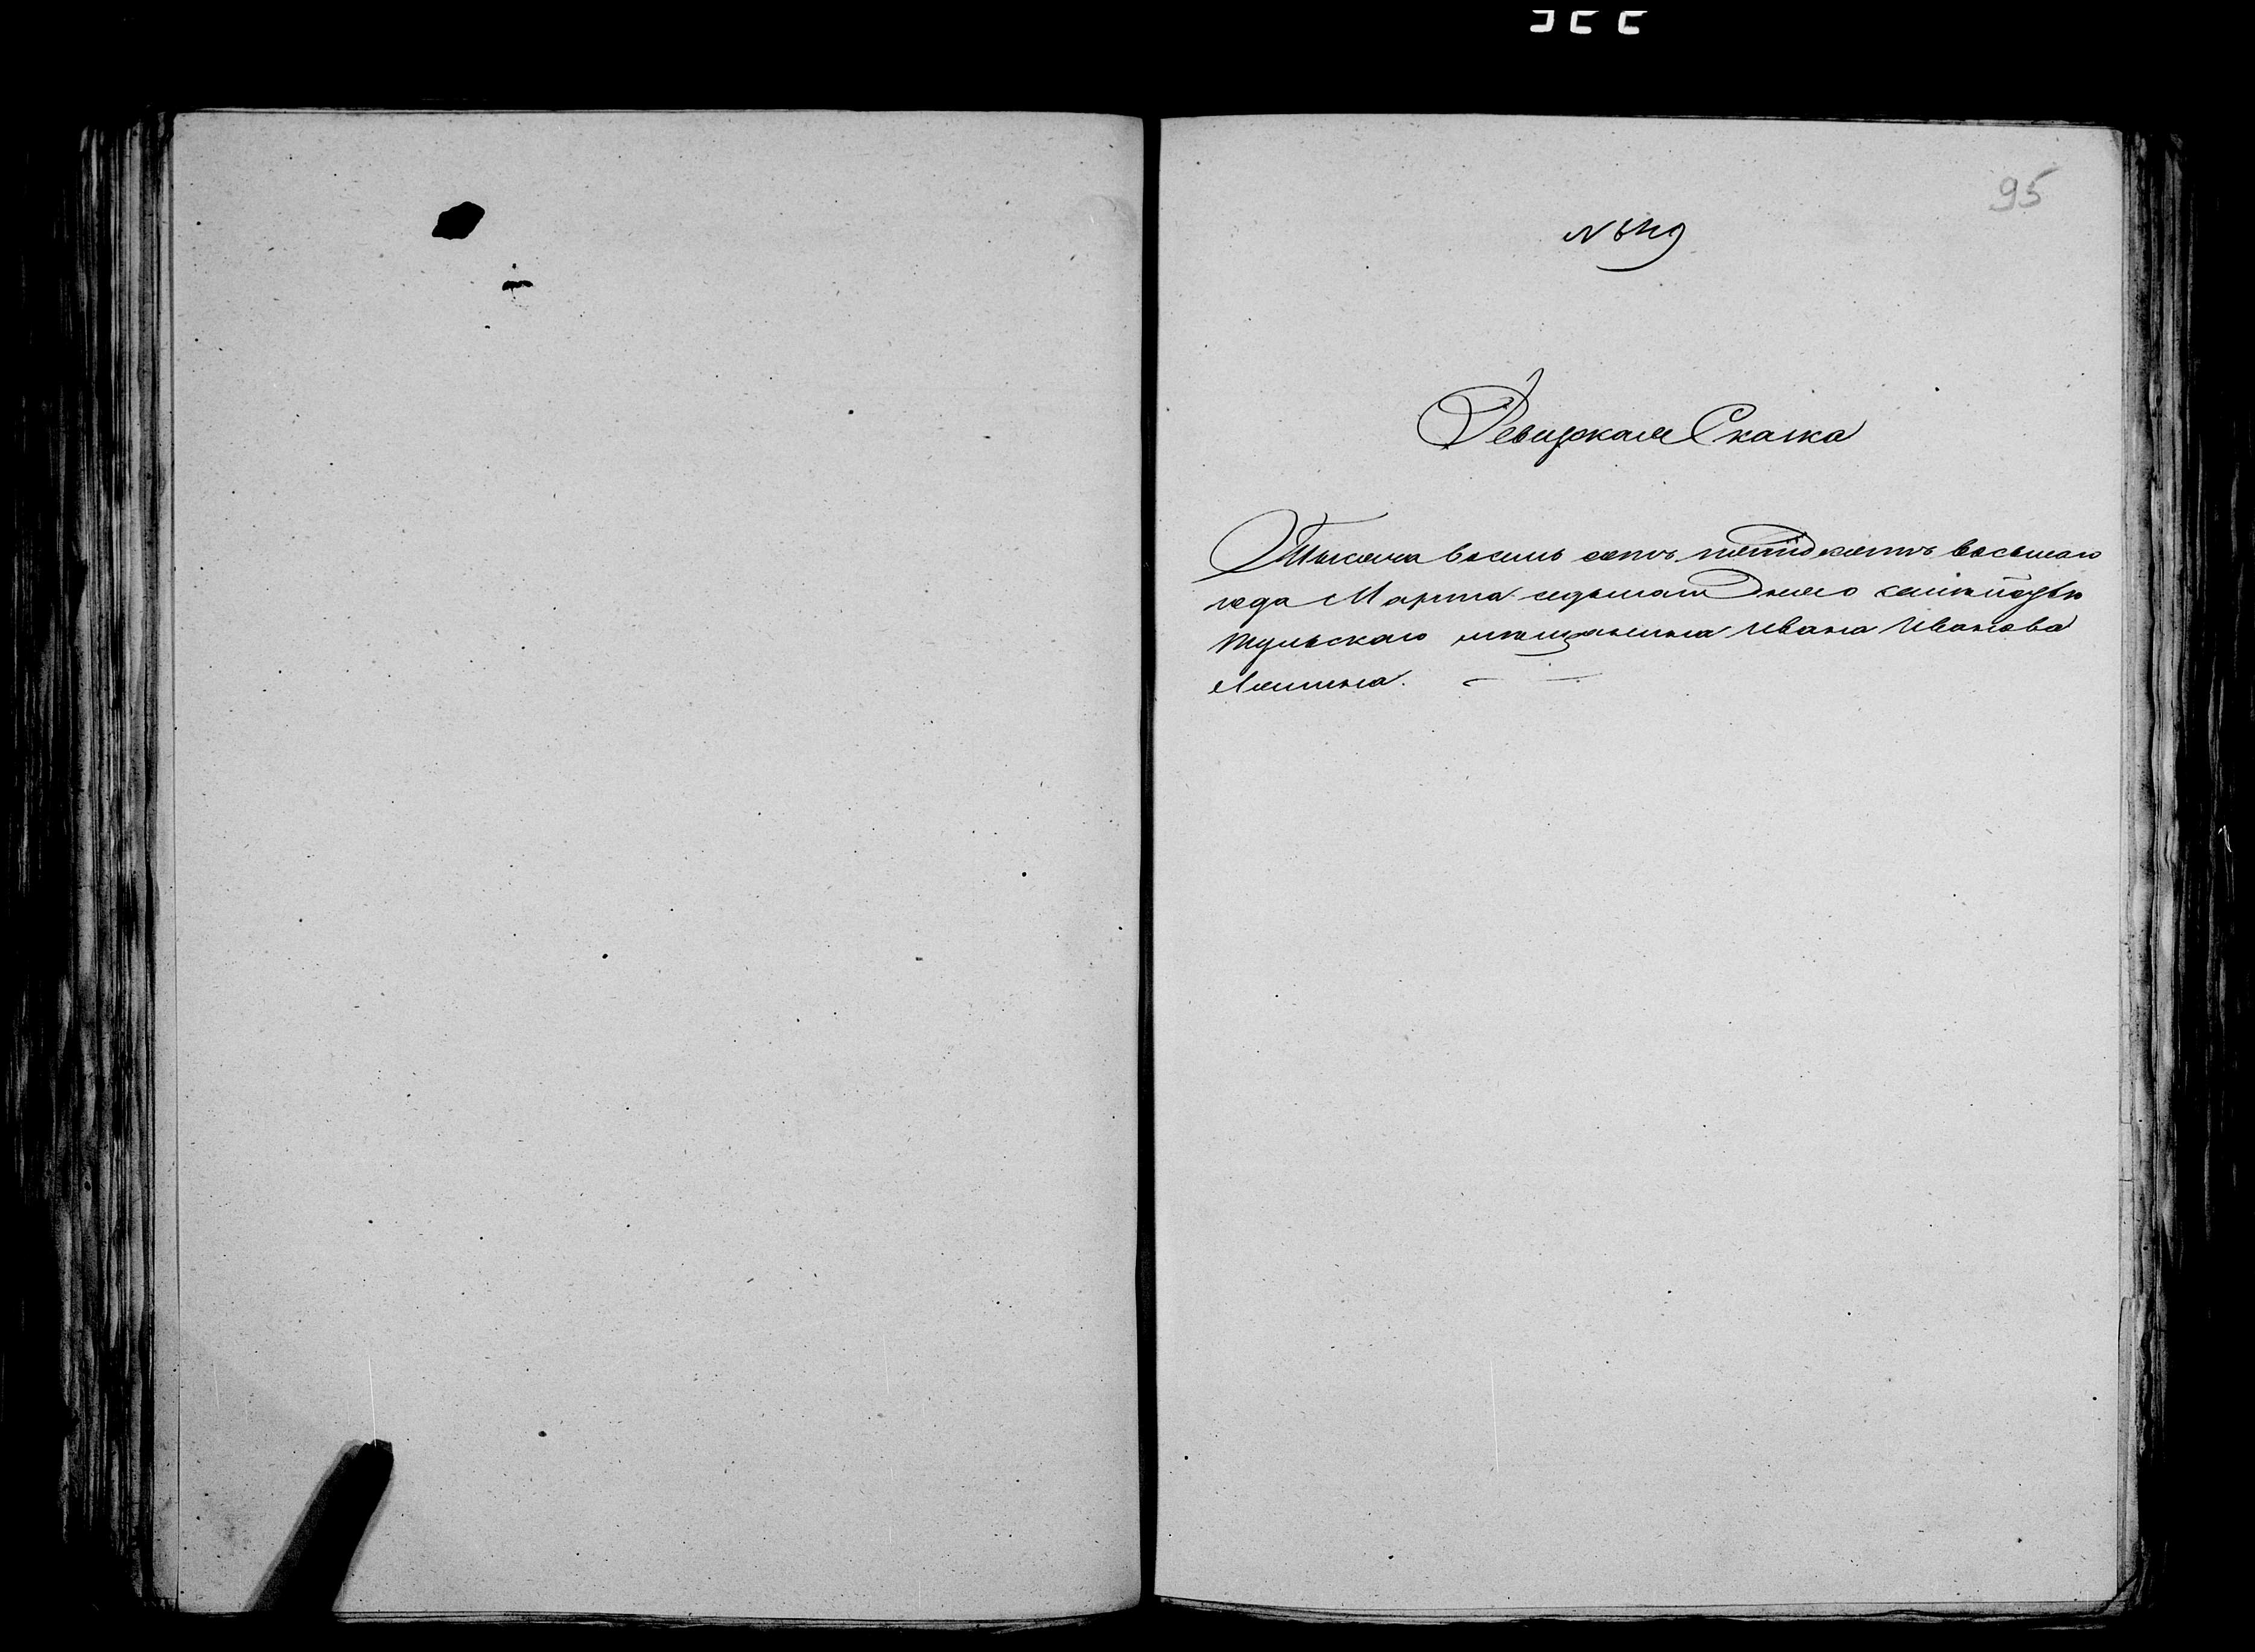 95
Ревизская Сказка
Тысяча восемь сотъ пятидесятъ восьмаго
года Марта седьмаго дня о
тульскаго мещанина Ивана Иванова